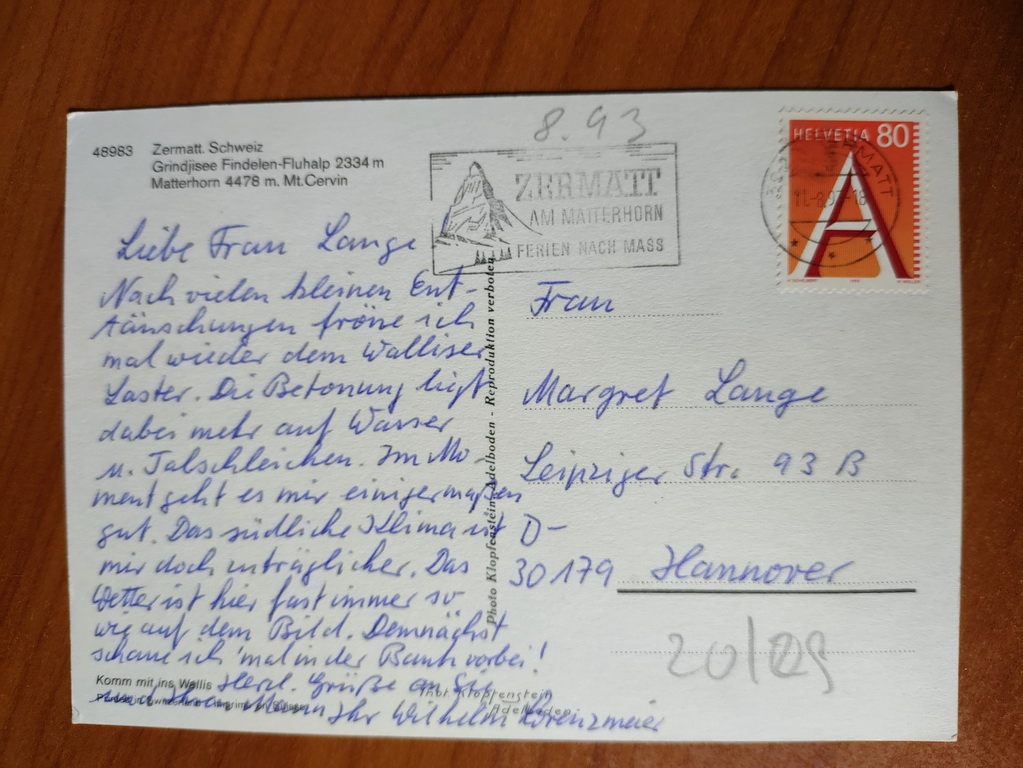 8.93
48983 Zermatt. Schweiz
Grindjisee Findelen-Fluhalp 2334 m
Matterhorn 4478 m. Mt. Cervin
ZERMATT
AM MATTERHORN
FERIEN NACH MASS
HELVETIA 80
A
ZERMATT
11.-8.93-18
Liebe Frau Lange
Nach vielen kleinen Ent-
täuschungen fröne ich
mal wieder dem Walliser
Laster. Die Betonung liegt
dabei mehr auf Wasser
u. Talschleichen. Im Mo-
ment geht es mir einigermaßen
gut. Das südliche Klima ist
mir doch uträglicher. Das
Wetter ist hier fast immer so
wie auf dem Bild. Demnächst
schaue ich 'mal in der Bank vorbei!
Herzl. Grüße an Sie
und Ihren Mann Ihr Wilhelm Lorenzmeier
Photo Klopfenstein, Adelboden - Reproduktion verboten
Frau
Margret Lange
Leipziger Str. 93 B
D-
30179 Hannover
20/29
Komm mit ins Wallis
Printed in Switzerland
Phot. Klopfenstein
Adelboden